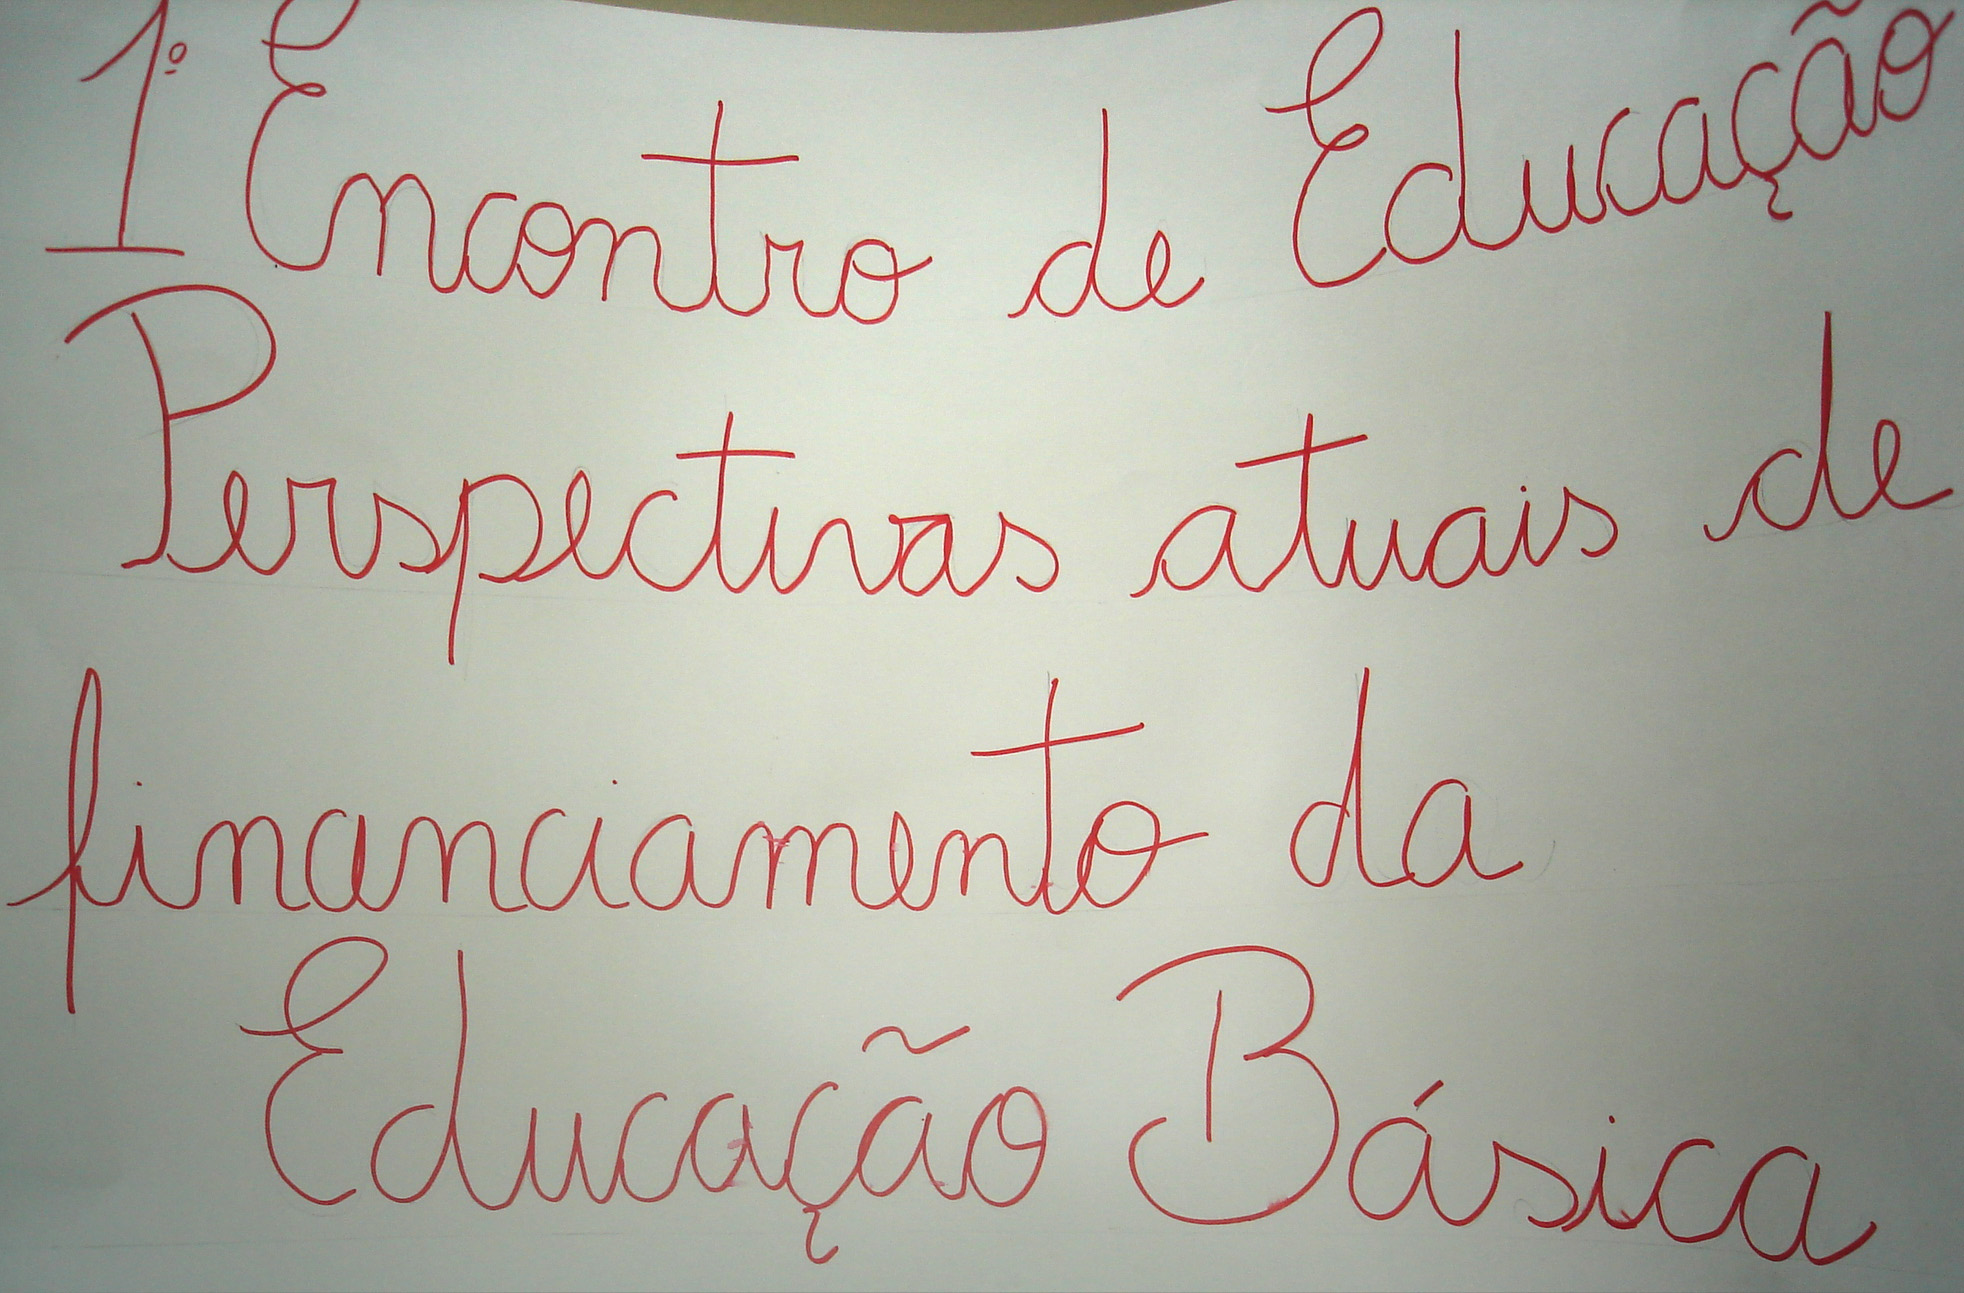 1º Encontro de Educação
Perspectivas atuais de
financiamento da
Educação Básica